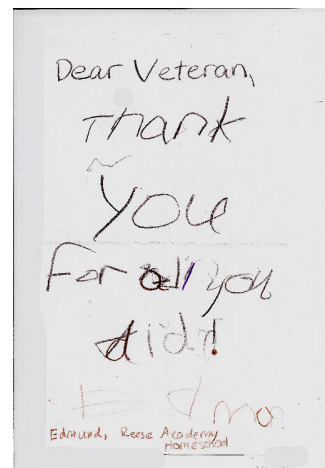 Dear Veteran,
Thank
you
For all you
did!
Edmund, Reese Academy
Homeschool